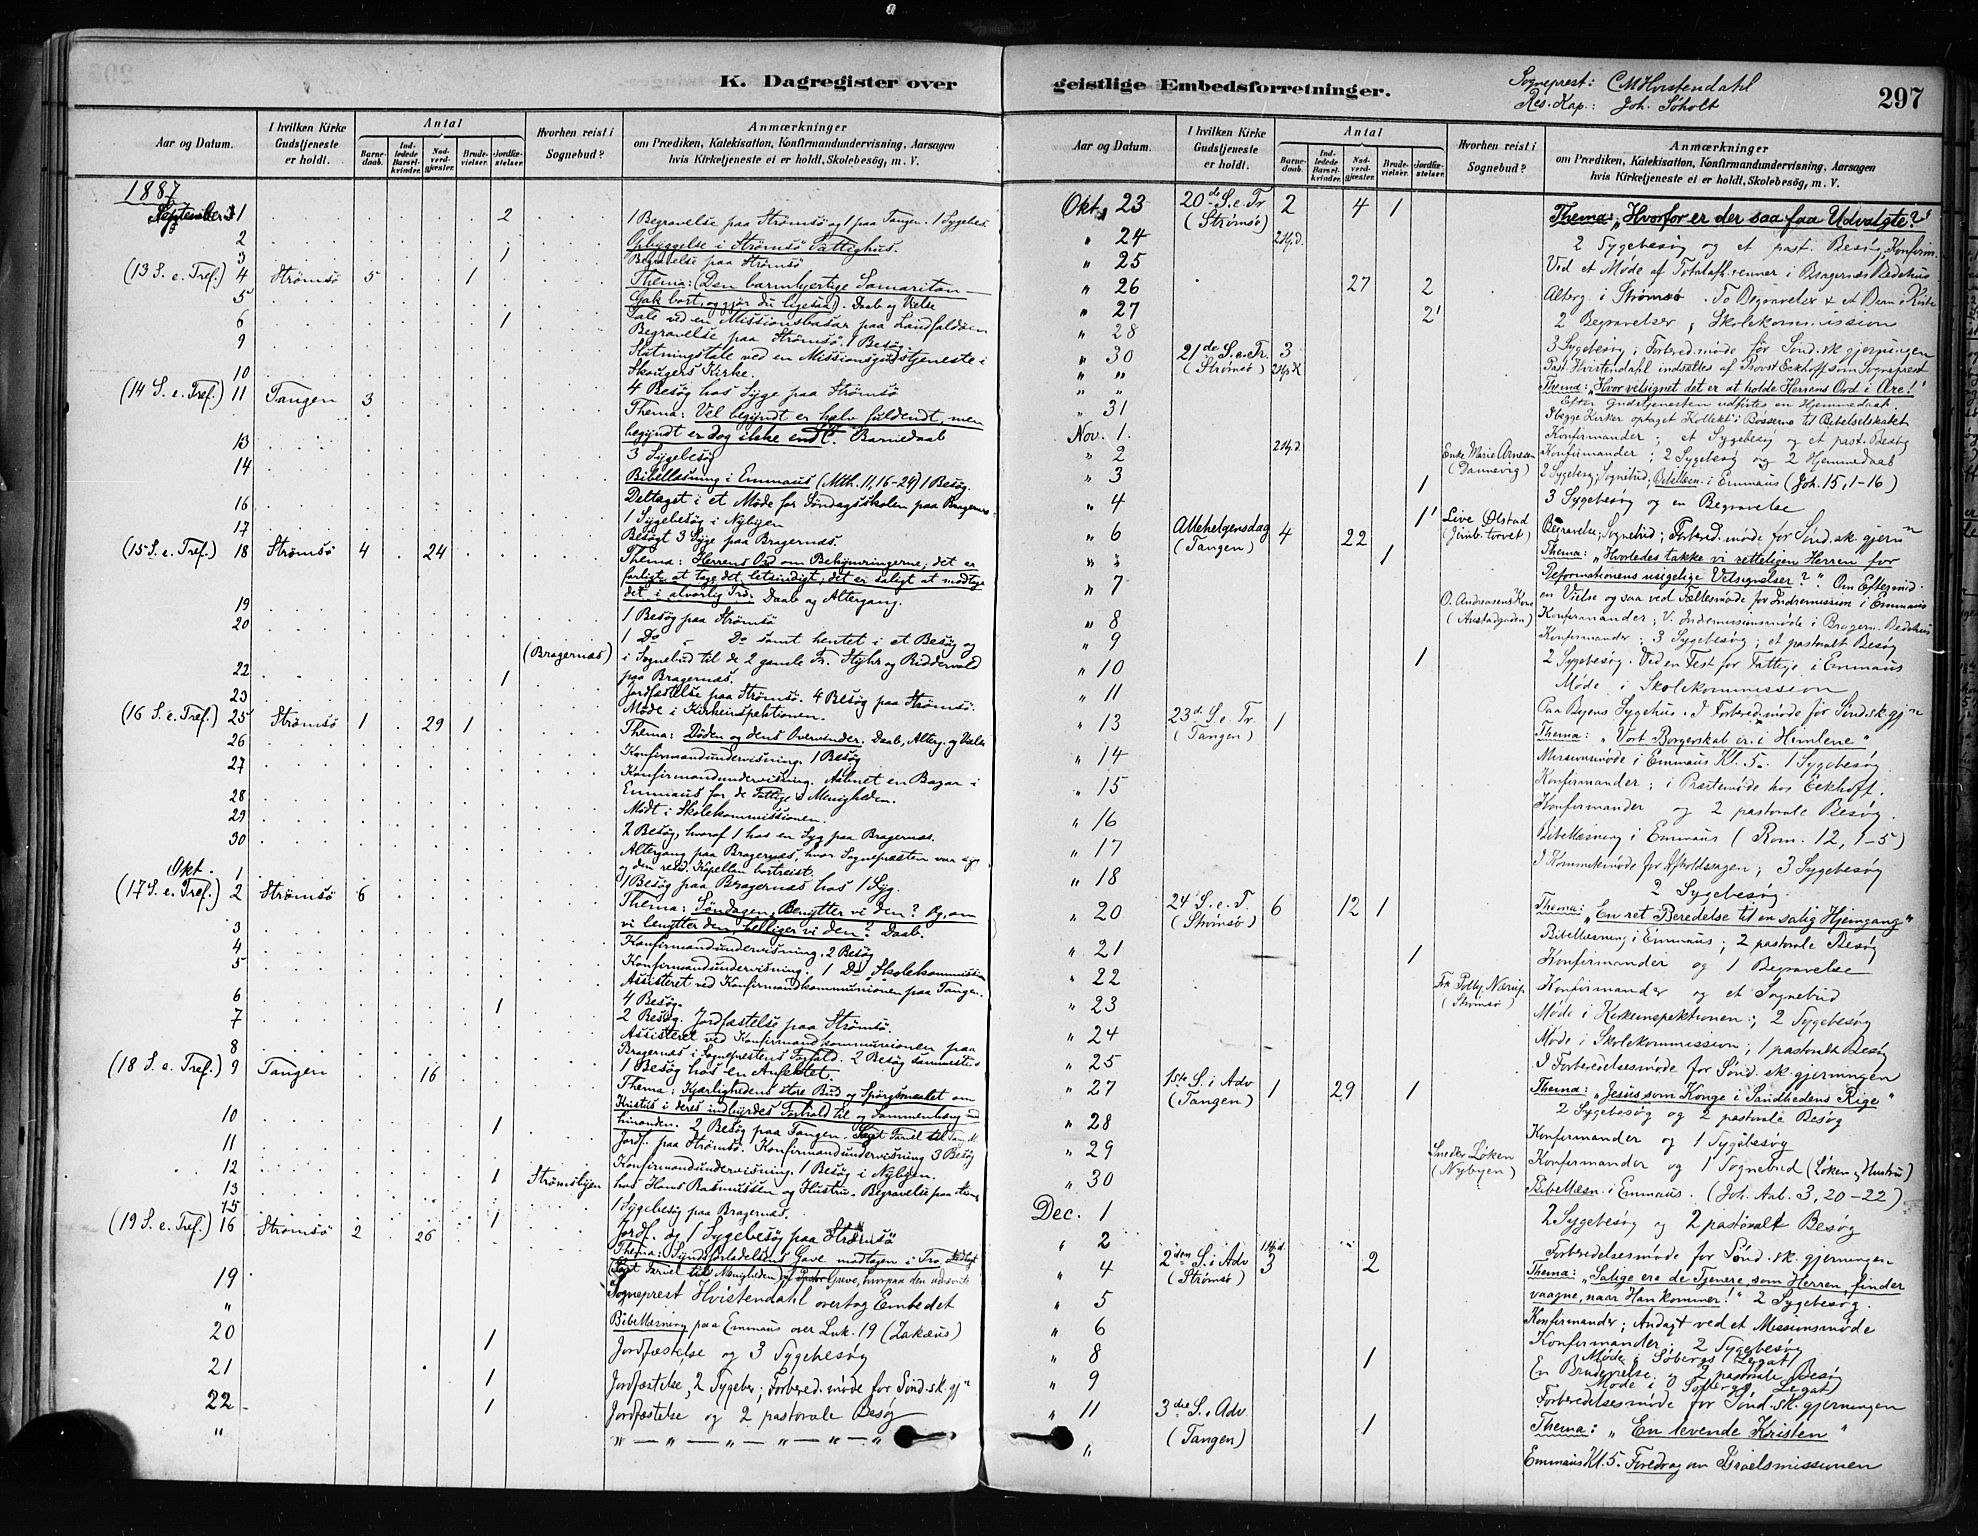 K. Dagregister over geistlige Embedsforretninger.
Sogneprest: CMHvistendahl
Res. Kap.: Joh. Søholt
297
Aar og Datum.
I hvilken Kirke Gudstjeneste er holdt.
Antal
Barnedaab.
Indledede Barselkvinder.
Nadverdgjæster.
Brudevielser.
Jordfæstelser.
Hvorhen reist i Sognebud?
Anmærkninger
om Prædiken, Katekisation, Konfirmandundervisning, Aarsagen
hvis Kirketjeneste ei er holdt, Skolebesøg, m. V.
1887
September 1 2 1 Begravelse paa Strømsø og 1 paa Tangen. 1 Sygebes.
2 Opbyggelse i Strømsø Fattighus.
3 1 Begravelse paa Strømsø
(13 S. e. Tref.) 4 Strømsø 5 1 Thema: (Den barmhjertige Samaritan —
5 Gak bort, og gjør du ligesaa). Daab og Vielse
6 1 Tale ved en Missionsbasar paa Landfaldøen
Begravelse paa Strømsø. 1 Besøg.
9 Slutningstale ved en Missionsgudstjeneste i
Skougers Kirke.
10 4 Besøg hos Syge paa Strømsø
(14 S. e. Tref.) 11 Tangen 3 Thema: Vel begyndt er halv fuldendt, men
begyndt er dog ikke endt. Barnedaab
13 3 Sygebesøg
14 Bibellæsning i Emmaus (Mth. 11, 16-24) 1 Besøg.
Deltaget i et Møde for Søndagsskolen paa Bragernæs.
16 1 Sygebesøg i Nybyen
17 Besøgt 3 Syge paa Bragernæs.
(15 S. e. Tref.) 18 Strømsø 4 24 Thema: Herrens Ord om Bekymringerne, det er
farligt at tage det letsindigt, det er saligt at modtage
det i alvorlig Tro. Daab og Altergang.
19 1 Besøg paa Strømsø
20 1 Do - Do samt hentet i et Besøg og
(Bragernæs) i Sognebud til de 2 gamle Fr. Styhr og Riddervold
paa Bragernæs.
22 1 Jordfæstelse paa Strømsø. 4 Besøg paa Strømsø.
23 Møde i Kirkeinspektionen.
(16 S. e. Tref.) 25 Strømsø 1 29 1 Thema: Døden og dens Overvinder. Daab, Alterg. og Vielse
26 Konfirmandundervisning. 1 Besøg
27 Konfirmandundervisning. Aabnet en Bazar i
Emmaus for de Fattige i Menigheden.
28 Mødt i Skolekommissionen.
29 2 Besøg, hvoraf 1 hos en Syg paa Bragernæs.
30 Altergang paa Bragernæs, hvor Sognepræsten var syg
og den resid. Kapellan bortreist.
Okt. 1 1 Besøg paa Bragernæs hos 1 Syg.
(17 S. e. Tref.) 2 Strømsø 6 Thema: Søndagen, Benytter vi den? Og, om
vi benytter den, helliger vi den? Daab.
3 Konfirmandundervisning. 2 Besøg
4 Konfirmandundervisning. 1 Do Skolekommission
5 Assisteret ved Konfirmandkommunionen paa Tangen.
4 Besøg.
6 1 2 Besøg. Jordfæstelse paa Strømsø.
7 Assisteret ved Konfirmandkommunionen paa
8 Bragernæs i Sogneprestens Forfald. 2 Besøg sammesteds
(18 S. e. Tref.) 9 Tangen 16 1 Besøg hos en Anfektet.
Thema: Kjærlighedens store Bud og Spørgsmaalet om
Kristus i deres indbyrdes Forhold til og Sammenhæng med
10 1 hinanden. 2 Besøg paa Tangen. Sagt Farvel til Tang. M.
11 Jordf. paa Strømsø. Konfirmandundervisning 3 Besøg
12 Konfirmandundervisning. 1 Besøg i Nybyen.
13 1 Strømsbyen hos Hans Rasmussen og Hustru. Begravelse paa Strøms.
15 1 Sygebesøg paa Bragernæs.
(19 S. e. Tref.) 16 Strømsø 2 26 1 Jordf. og 1 Sygebesøg paa Strømsø
Thema: Syndsforladelsens Gave modtagen i Tro,
(Sagt Farvel til Menigheden)
19 Sogneprest Hvistendahl overtog Embedet
" Bibellæsning paa Emmaus over Luk. 19 (Zakæus)
20 1 Jordfæstelse og 3 Sygebesøg
21 1 Jordfæstelse, 2 Sygebes; Forbered. møde for Sønd. sk. gj
22 1 Jordfæstelse og 2 pastorale Besøg
" " — " — " — " — " — "
Aar og Datum.
I hvilken Kirke Gudstjeneste er holdt.
Antal
Barnedaab.
Indledede Barselkvinder.
Nadverdgjæster.
Brudevielser.
Jordfæstelser.
Hvorhen reist i Sognebud?
Anmærkninger
om Prædiken, Katekisation, Konfirmandundervisning, Aarsagen
hvis Kirketjeneste ei er holdt, Skolebesøg, m. V.
Okt. 23 20de S. e. Tr (Strømsø) 2 4 1 Thema: "Hvorfor er der saa faa Udvalgte?"
" 24 2 Hjd. 2 Sygebesøg og et past. Besøg; Konfirm.
" 25 Ved et Møde af Totalafh.venner i Bragernæs Bedehus
" 26 27 2 Alterg. i Strømsø. To Begravelser & et Barn i Kiste
" 27 2 2 Begravelser; Skolekommission
" 28 3 Sygebesøg; Forbered. møde for Sønd. sk. gjerningen
" 30 21de S. e. Tr. (Strømsø) 3 Past. Hvistendahl indsættes af Provst Eckhoff som Sogneprest
" " 2 Hjd Thema: "Hvor velsignet det er at holde Herrens Ord i Ære!"
Efter Gudstjenesten udførtes en Hjemmedaab
" 31 Begge Kirker optaget Kollekt i Bøsserne til Bibelselskabet
Nov. 1. Konfirmander; et Sygebesøg og et past. Besøg
" 2 2 Hjd. Enke Marie Arnesen (Dannevig) Konfirmander; 2 Sygebesøg og 2 Hjemmedaab
" 3 2 Sygebesøg; Sognebud, Bibellæsn. i Emmaus (Joh. 15, 1-16)
" 4 1 3 Sygebesøg og en Begravelse
" 6 Allehelgensdag (Tangen) 4 22 1 Live Ølstad (Jernb. torvet) Begravelse; Sognebud; Forbered. møde for Sønd. sk. gjern
" " 1 Thema: "Hvorledes takke vi retteligen Herren for
Reformationens usigelige Velsignelser?" Om Eftermid.
" 7 O. Andreasens Kone (Austadgaden) en Vielse og saa ved Fællesmøde for Indremission i Emmaus
" 8 Konfirmander; V. Indremissionsmøde i Bragern. Bedehus
" 9 Konfirmander; 3 Sygebesøg; et pastoralt Besøg
" 10 1 2 Sygebesøg. Ved en Fest for Fattige i Emmaus
" 11 Møde i Skolekommission
Paa Byens Sygehus. I Forbered. møde for Sønd. sk. gj
" 13 23d. S. e. Tr. (Tangen) 1 Thema: "Vort Borgerskab er i Himlene"
" 14 Missionsmøde i Emmaus Kl. 5. 1 Sygebesøg
" 15 Konfirmander; i Præstemøde hos Eckhoff.
" 16 Konfirmander og 2 pastorale Besøg.
" 17 Bibellæsning i Emmaus (Rom. 12, 1-5)
" 18 I Kommitemøde for Afholdssagen; 3 Sygebesøg
2 Sygebesøg
" 20 24 S. e. T. (Strømsø) 6 12 1 Thema: "En ret Beredelse til en salig Hjemgang"
" 21 1 Bibellæsning i Emmaus; 2 pastorale Besøg
Konfirmander og 1 Begravelse
" 22 (Strømsø) Konfirmander og et Sognebud
" 23 Møde i Kirkeinspektionen; 2 Sygebesøg
" 24 Møde i Skolekommission; 1 pastoralt Besøg
" 25 I Forberedelsesmøde for Sønd. sk. gjerningen
" 27 1ste S. i Adv (Tangen) 1 29 1 Thema: "Jesus som Konge i Sandhedens Rige"
" 28 2 Sygebesøg og 2 pastorale Besøg
" 29 Konfirmander og 1 Sygebesøg
" 30 Snedker Løken (Nybyen) Konfirmander og 1 Sognebud (Løken og Hustru)
Dec. 1 Bibellæsn. i Emmaus. (Joh. Aab. 3, 20-22)
" 2 2 Sygebesøg og 2 pastoralt Besøg
Forberedelsesmøde for Sønd. sk. gjerningen
" 4 2den S. i Adv (Strømsø) 1 Hjd. 3 2 Thema: "Salige ere de Tjenere, som Herren finder
" 5 vaagne, naar Han kommer!" 2 Sygebesøg.
" 6 Konfirmander; Andagt ved et Missionsmøde
" 8 1 Konfirmander; 2 Sygebesøg
Møde i Søbergs Legat
" 9 En Brudevielse og 2 pastorale Besøg
Forberedelsesmøde for Sønd. sk. gjerningen
" 11 3die S. i Adv (Tangen) 1 Thema: "En levende Kristen"
" Emmaus Kl. 5. Foredrag om Israelsmissionen